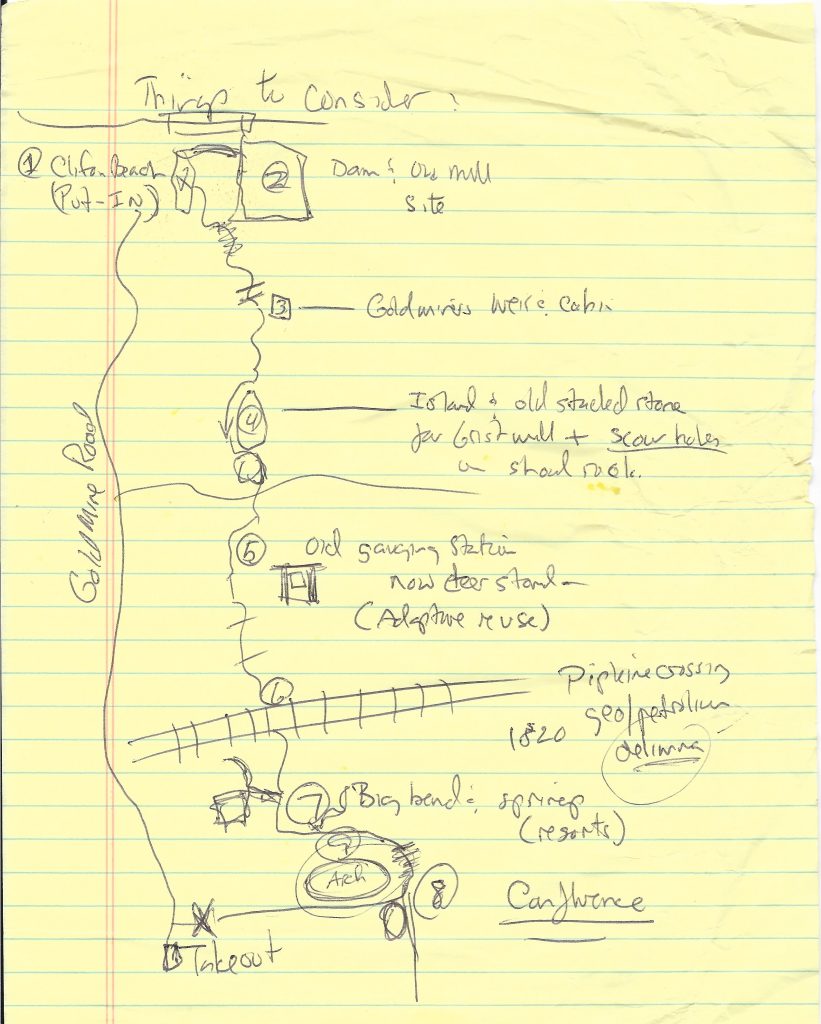 Things to Consider:
① Clifton Beach
(Put-IN)
1
②
Dam & Old Mill
Site
3
Goldminers weir & cabin
④
Island & old stacked stone
for Gristmill + scour holes
in shoal rock.
Gold Mine Road
⑤ Old gauging station
now deer stand
(Adaptive reuse)
⑥
Pipline crossing
geo/petrolium
1820
delimna
⑦
Big bend & springs
(resorts)
9
Arch
⑧
Confluence
X
Takeout